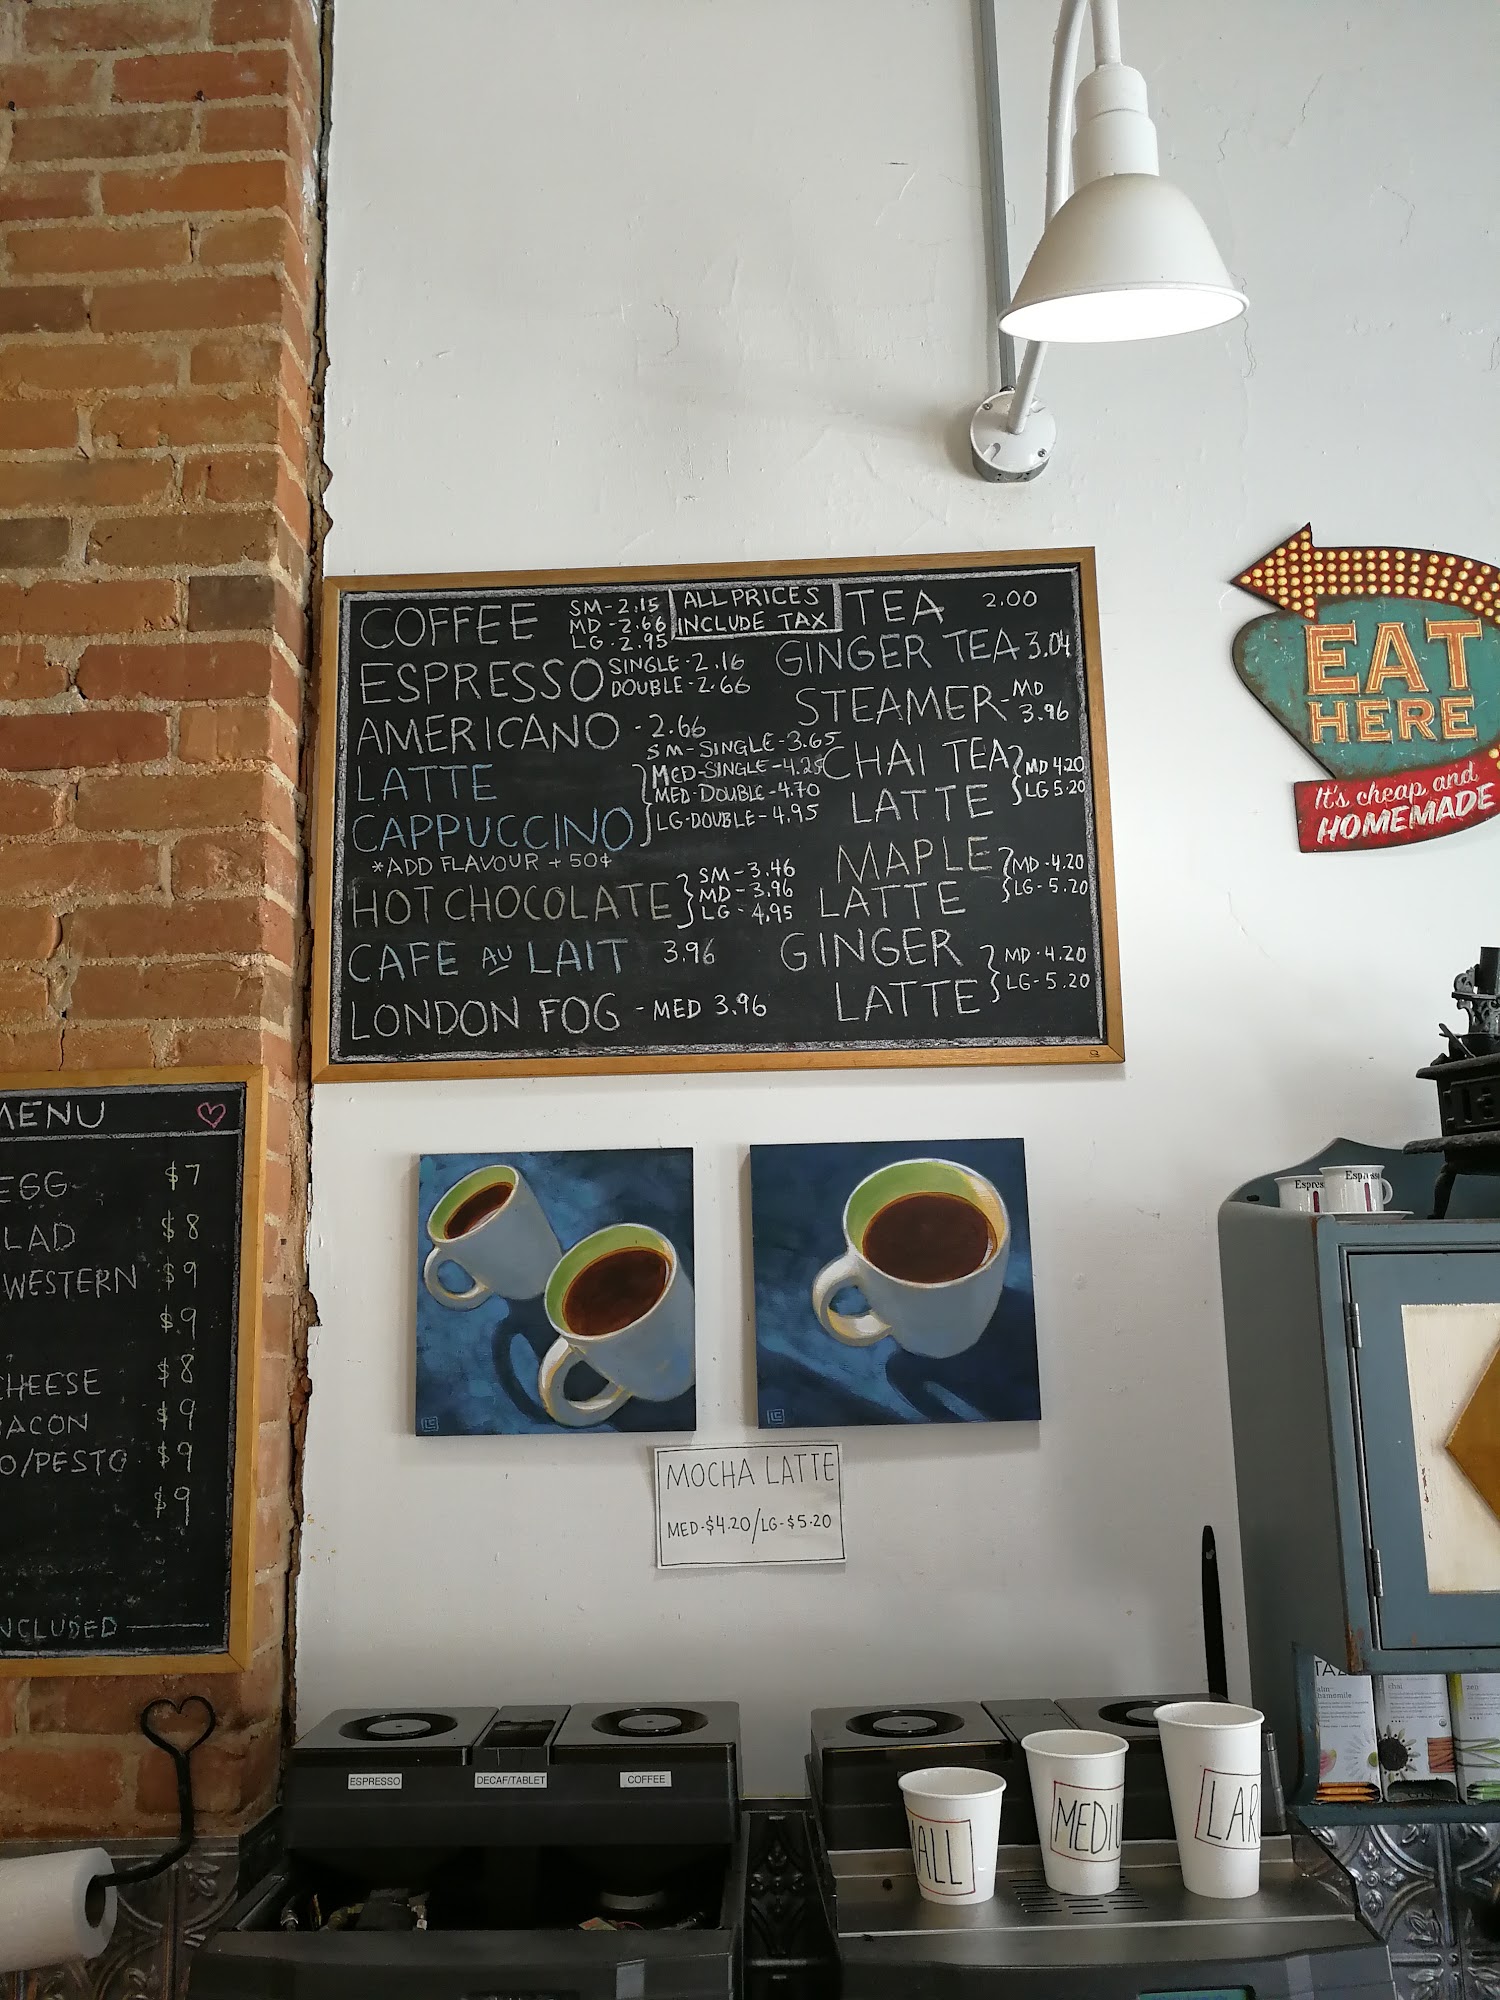 COFFEE
SM-2.15
MD-2.66
LG-2.95
ALL PRICES
INCLUDE TAX
ESPRESSO
SINGLE-2.16
DOUBLE-2.66
AMERICANO - 2.66
LATTE
CAPPUCCINO
SM-SINGLE-3.65
MED-SINGLE-4.25
MED-DOUBLE-4.70
LG-DOUBLE-4.95
*ADD FLAVOUR + 50¢
HOT CHOCOLATE
SM-3.46
MD-3.96
LG-4.95
CAFE AU LAIT 3.96
LONDON FOG - MED 3.96
TEA 2.00
GINGER TEA 3.04
STEAMER- MD
3.96
CHAI TEA
LATTE
MD 4.20
LG 5.20
MAPLE
LATTE
MD-4.20
LG-5.20
GINGER
LATTE
MD-4.20
LG-5.20
EAT
HERE
It's cheap and
HOMEMADE
MENU
EGG $7
LAD $8
WESTERN $9
$9
CHEESE $8
BACON $9
O/PESTO $9
$9
INCLUDED
MOCHA LATTE
MED-$4.20/LG-$5.20
Espres
Espresso
ESPRESSO
DECAF/TABLET
COFFEE
ALL
MEDIU
LAR
TAZ
chamomile
chai
zen